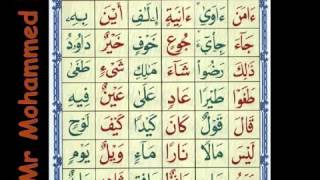 ءَامَنَ ءَاوِيٓ ءَانِيَةٍ إِۦلَٰفِ أَيْنَ بِهِۦ
جَآءَ جِاْيٓءَ جُوعٍ خَوْفٍ خَيْرٌ دَاوُۥدَ
ذَٰلِكَ رَضُواْ شَآءَ مَٰلِكِ شَىْءٍ طَغَىٰ
طَغَوْاْ طَيْرًا عَادٍ عَلَىٰ عَيْنٌ فِيهِ
قَالَ قَوْلٌ كَانَ كَيْدًا كَيْفَ لَوْحٍ
لَيْسَ مَالًا نَارًا مَآءٍ وَيْلٌ يَوْمٍ
Mr Mohammed